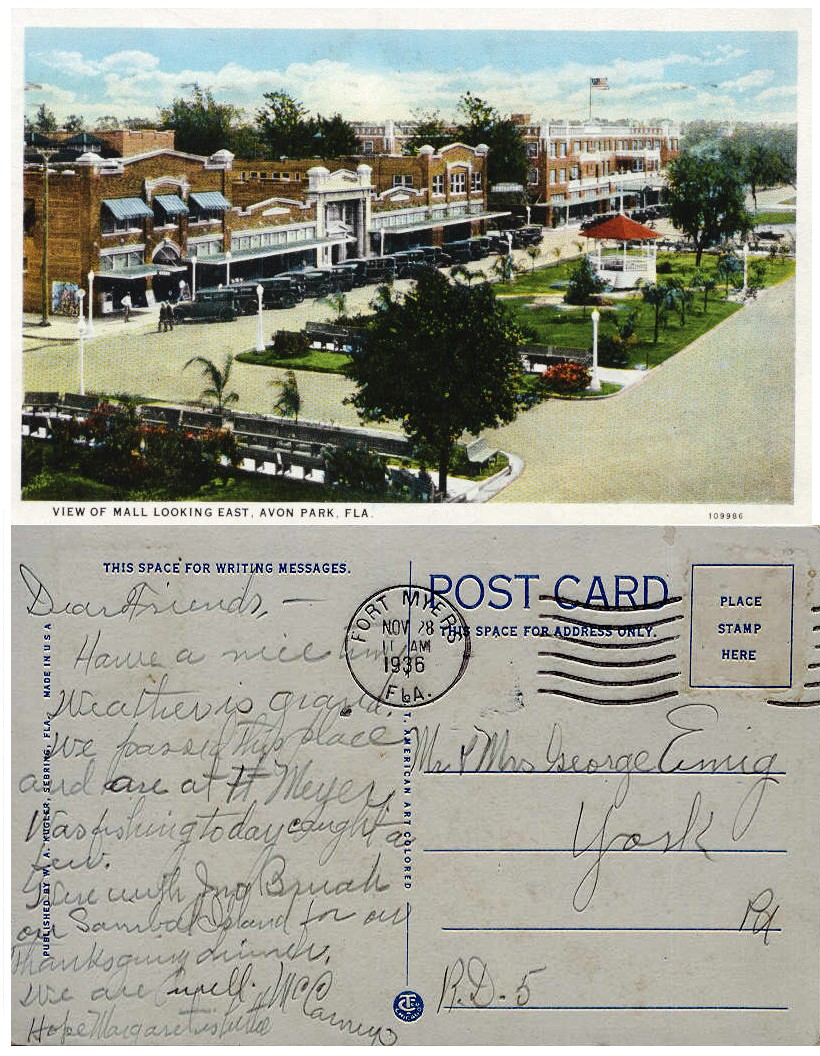 VIEW OF MALL LOOKING EAST, AVON PARK, FLA.
109986
THIS SPACE FOR WRITING MESSAGES.
Dear Friends, —
Have a nice time
Weather is grand.
We passed this place
and are at Ft Meyer,
Was fishing today caught a
few.
Were with Jno
on Sanibal Island for our
Thanksgiving dinner.
We are well. McC
Hope Margaret is better
PUBLISHED BY W. A. KUGLER, SEBRING, FLA. MADE IN U S A
C. T. AMERICAN ART COLORED
FORT MYERS
NOV 28
11 AM
1936
FLA.
POST CARD
THIS SPACE FOR ADDRESS ONLY.
PLACE
STAMP
HERE
Mr & Mrs George Emig
York
Pa
R.D. 5
CHICAGO